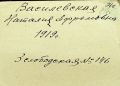 Василевская
Наталия Ефремовна
1919г.
Злободская № 146